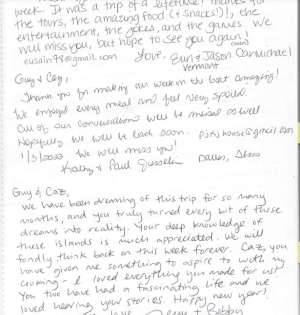 week. It was a trip of a lifetime! Thanks for
the tours, the amazing food (+ snacks!), the
entertainment, the jokes, and the games. We
will miss you, but hope to see you again!
@gmail.com Love, Eun & Jason Carmichael
Vermont
Guy & Caz,
Thank you for making our week on the boat amazing!
We enjoyed every meal and feel very spoiled.
All of our conversations will be missed as well
Hopefully we will be back soon. @gmail.com
1/3/2020 We will miss you!
Kathy & Paul Dallas, Texas
Guy & Caz,
We have been dreaming of this trip for so many
months, and you truly turned every bit of those
dreams into reality. Your deep knowledge of
these islands is much appreciated. We will
fondly think back on this week forever. Caz, you
have given me something to aspire to with my
cooking - I loved everything you made for us!
You two have had a fascinating life and we
loved hearing your stories. Happy new year!
love + Bobby